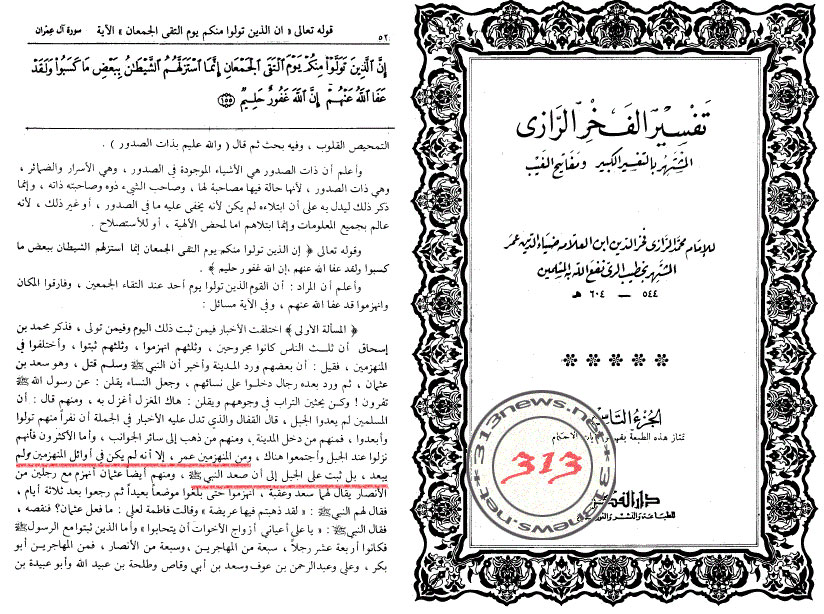 سورة آل عمران
قوله تعالى « ان الذين تولوا منكم يوم التقى الجمعان » الآية
٥٢
إِنَّ الَّذِينَ تَوَلَّوْا مِنكُمْ يَوْمَ الْتَقَى الْجَمْعَانِ إِنَّمَا اسْتَزَلَّهُمُ الشَّيْطَانُ بِبَعْضِ مَا كَسَبُوا وَلَقَدْ
عَفَا اللَّهُ عَنْهُمْ إِنَّ اللَّهَ غَفُورٌ حَلِيمٌ ١٥٥
التمحيص القلوب ، وفيه بحث ثم قال ( والله عليم بذات الصدور ) .
وأعلم أن ذات الصدور هي الأشياء الموجودة في الصدور ، وهي الأسرار والضمائر ،
وهي ذات الصدور ، لأنها حالة فيها مصاحبة لها ، وصاحب الشيء ذوه وصاحبته ذاته ، وإنما
ذكر ذلك ليدل به على أن ابتلاءه لم يكن لأنه يخفى عليه ما في الصدور ، أو غير ذلك ، لأنه
عالم بجميع المعلومات وإنما ابتلاهم اما لمحض الألهية ، أو للأستصلاح .
وقوله تعالى ﴿ إن الذين تولوا منكم يوم التقى الجمعان إنما استزلهم الشيطان ببعض ما
كسبوا ولقد عفا الله عنهم ، إن الله غفور حليم ﴾ .
وأعلم أن المراد : أن القوم الذين تولوا يوم أحد عند التقاء الجمعين ، وفارقوا المكان
وانهزموا قد عفا الله عنهم ، وفي الآية مسائل :
﴿ المسألة الأولى ﴾ اختلفت الأخبار فيمن ثبت ذلك اليوم وفيمن تولى ، فذكر محمد بن
إسحاق أن ثلث الناس كانوا مجروحين ، وثلثهم انهزموا ، وثلثهم ثبتوا ، وأختلفوا في
المنهزمين ، فقيل : أن بعضهم ورد المدينة وأخبر أن النبي ﷺ وسلم قتل ، وهو سعد بن
عثمان ، ثم ورد بعده رجال دخلوا على نسائهم ، وجعل النساء يقلن : عن رسول الله ﷺ
تفرون ! وكن يحثين التراب في وجوههم ويقلن : هاك المغزل أغزل به ، ومنهم قال : أن
المسلمين لم يعدوا الجبل ، قال القفال والذي تدل عليه الأخبار في الجملة أن نفراً منهم تولوا
وأبعدوا ، فمنهم من دخل المدينة ، ومنهم من ذهب إلى سائر الجوانب ، وأما الأكثرون فأنهم
نزلوا عند الجبل وأجتمعوا هناك ، ومن المنهزمين عمر ، إلا أنه لم يكن في أوائل المنهزمين ولم
يبعد ، بل ثبت على الجبل إلى أن صعد النبي ﷺ ، ومنهم أيضاً عثمان أنهزم مع رجلين من
الأنصار يقال لهما سعد وعقبة ، أنهزموا حتى بلغوا موضعاً بعيداً ثم رجعوا بعد ثلاثة أيام ،
فقال لهم النبي ﷺ : « لقد ذهبتم فيها عريضة » وقالت فاطمة لعلي : ما فعل عثمان؟ فنقصه ،
فقال النبي ﷺ : « يا علي أعياني أزواج الأخوات أن يتحابوا » وأما الذين ثبتوا مع الرسول ﷺ
فكانوا أربعة عشر رجلاً ، سبعة من المهاجرين ، وسبعة من الأنصار ، فمن المهاجرين أبو
بكر ، وعلي وعبد الرحمن بن عوف وسعد بن أبي وقاص وطلحة بن عبيد الله وأبو عبيدة بن
تفسير الفخر الرازى
المشتهر بالتفسير الكبير ومفاتيح الغيب
للإمام محمد الرازى فخر الدين ابن العلامه ضياء الدين عمر
المشتهر بخطيب الرى نفع الله به المسلمين
٥٤٤ — ٦٠٤ هـ
الجزء التاس
تمتاز هذه الطبعة بفهر
دار الفكر
للطباعة والنشر والتوزيع
313news.net
313